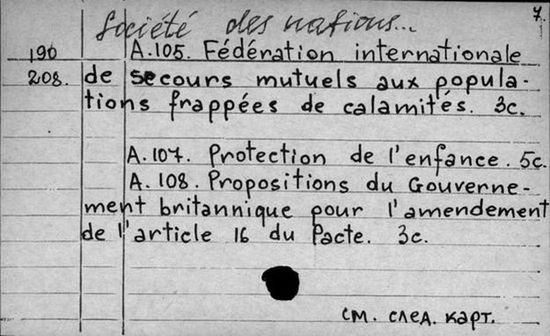 7.
Société des nations...
190 A.105. Fédération internationale
208. de secours mutuels aux popula-
tions frappées de calamités. 3c.
A.107. Protection de l'enfance. 5c.
A.108. Propositions du Gouverne-
ment britannique pour l'amendement
de l'article 16 du Pacte. 3c.
см. след. карт.